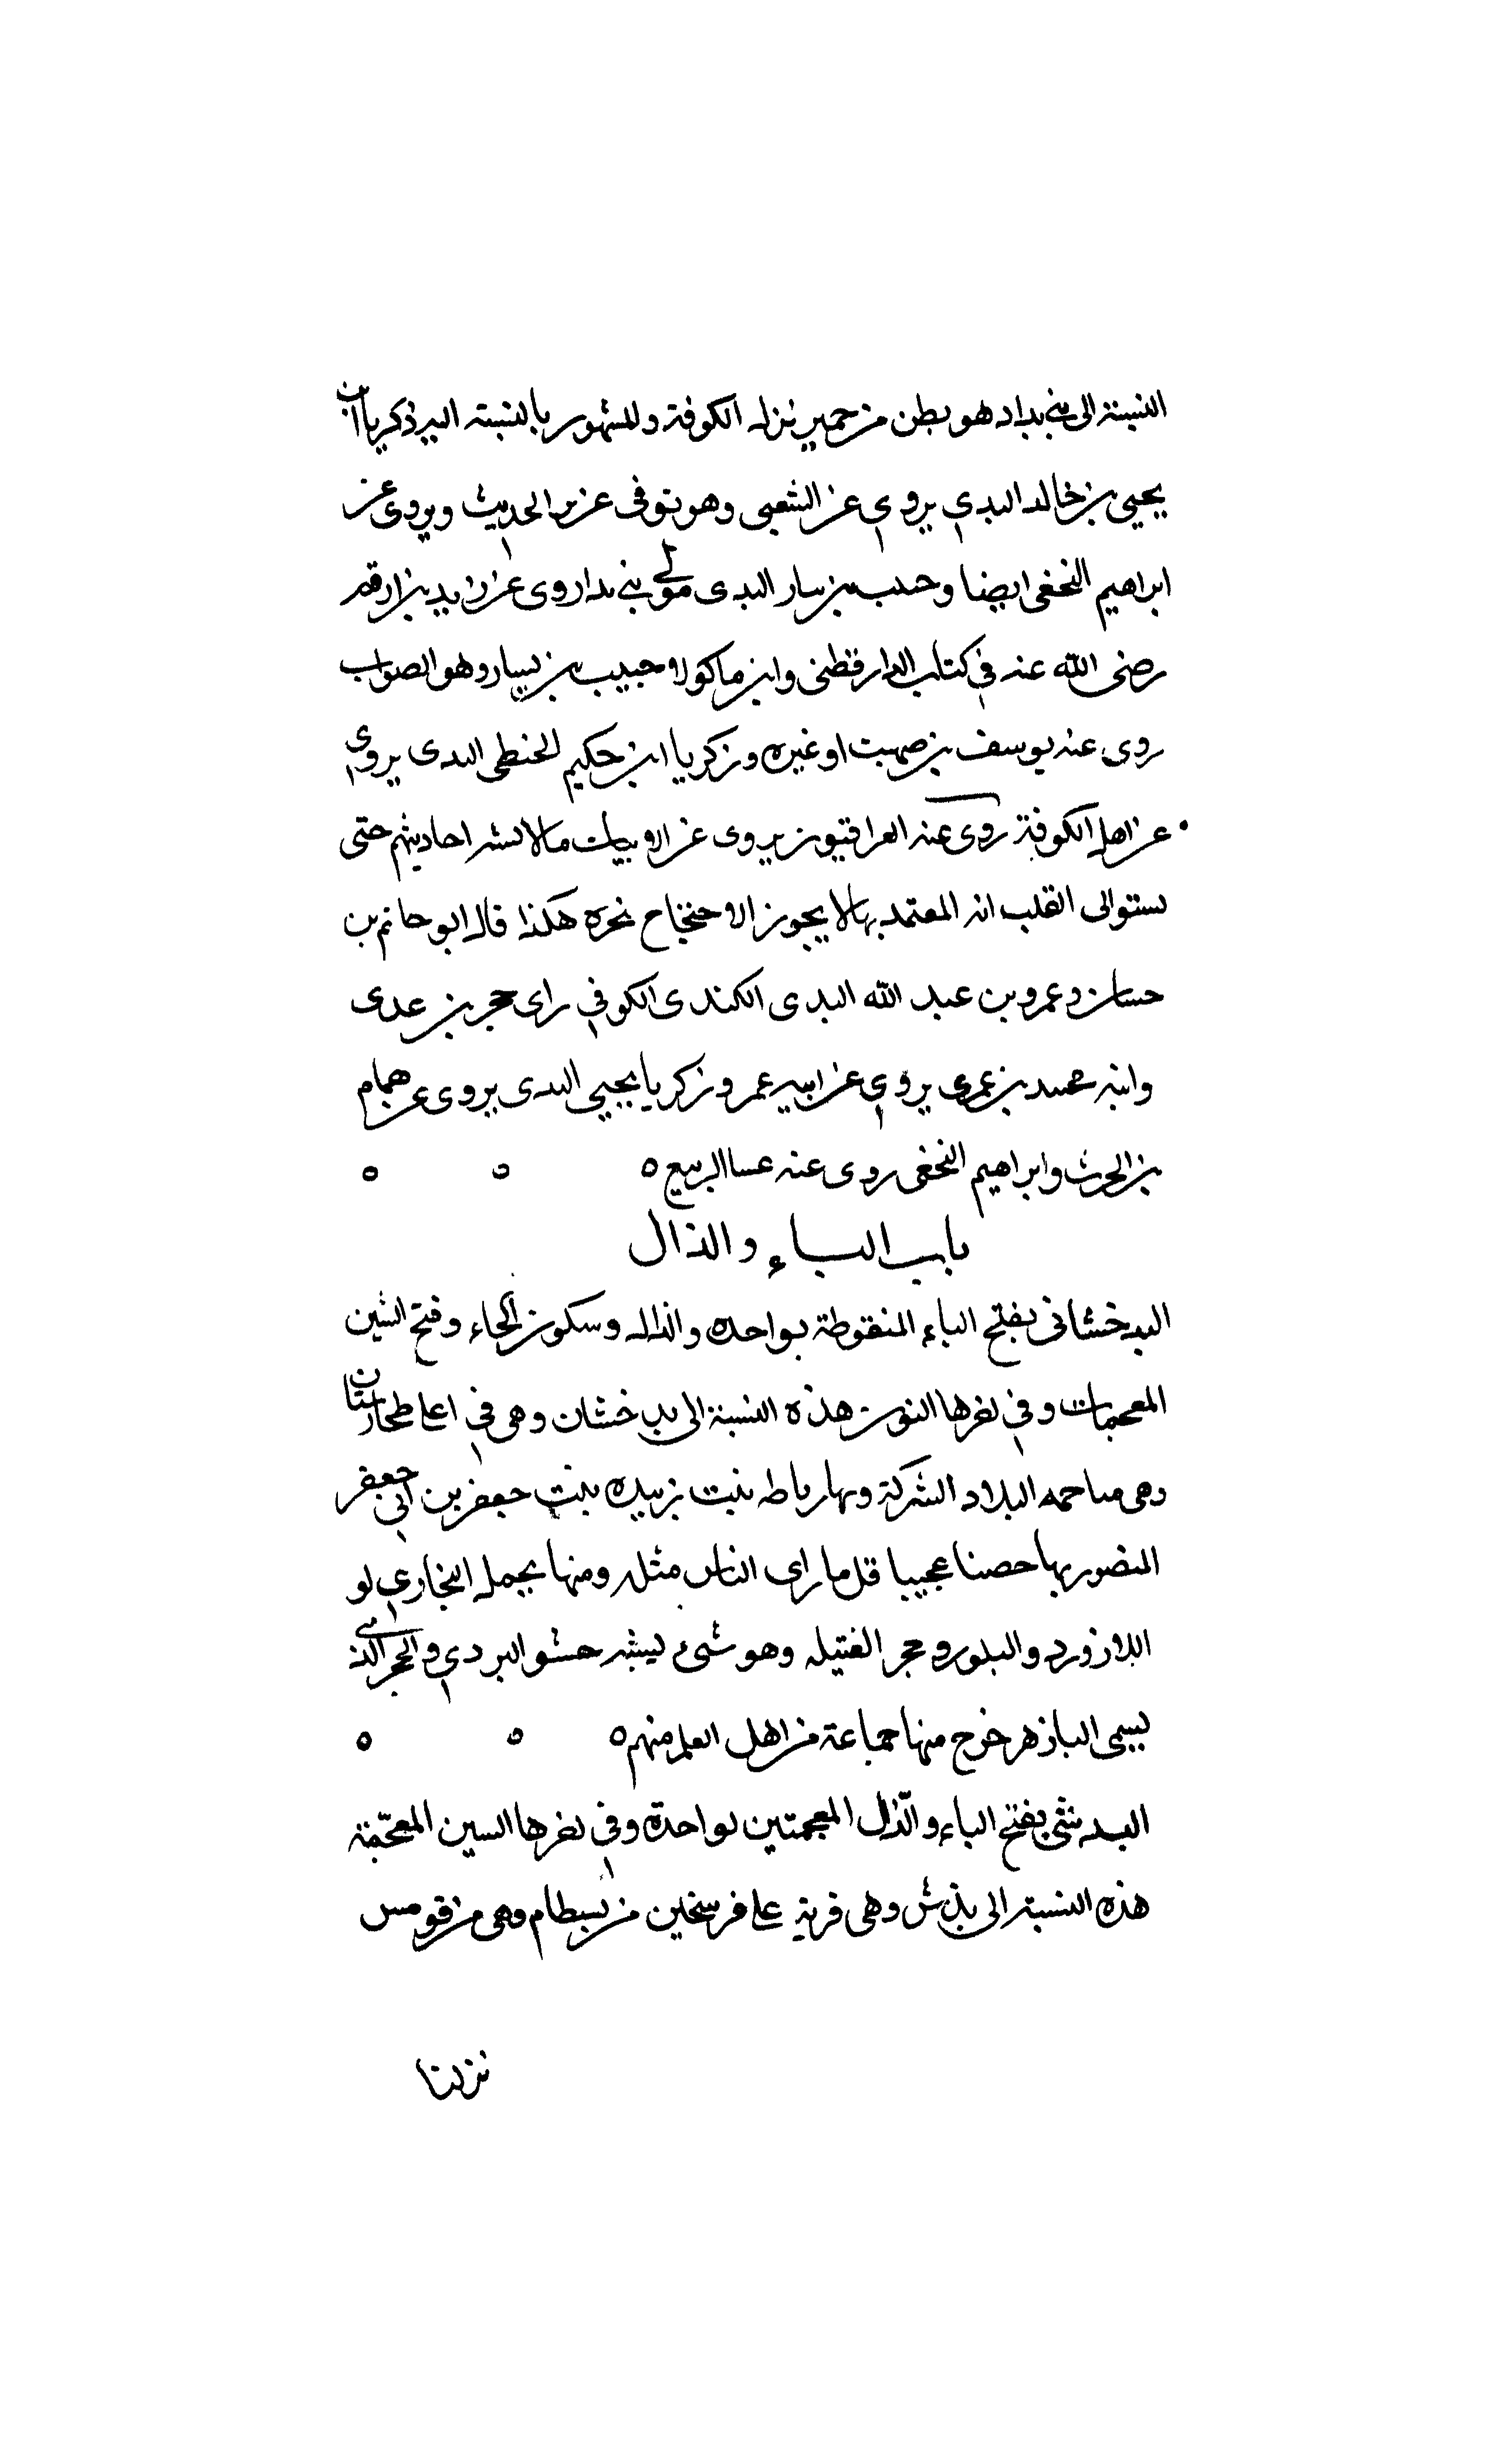 النسبة الى بني بداد هو بطن من حمير نزل الكوفة والمشهور بالنسبة اليه زكريا ابن
يحيى بن خالد البدي يروي عن الشعبى وهو توفى عزيز الحديث ويروى عن
ابراهيم النخعى ايضا وحبيب بن سار البدى مولے بني بدا روى عن زيد بن ارقم
رضى الله عنه في كتاب الدارقطنى وابن ماكولا حبيب بن يسار وهو الصواب
روى عنه يوسف بن صهيب او غيره وزكريا ابن حكيم الحنطى البدى يروي
عن اهل الكوفة روى عنه العراقيون يروى عن الاثبات مالا يشبه احاديثهم حتى
يستوالى القلب انه المعتمد بها لا يجوز الاحتجاج بخبره هكذا قال ابو حاتم بن
حسان وعمرو بن عبد الله البدى الكندى الكوفي راى حجر بن عدى
وابنه محمد بن عمرو يروي عن ابيه عمر وزكريا يحيى البدى يروى عن همام
بن الحرث وابراهيم النخعى روى عنه عسا الربيع ه ه ه
باب الباء والذال
البدخشانى بفتح الباء المنقوطة بواحده والذال وسكون الخاء وفتح الشين
المعجمات وفي اخرها النون هذه النسبة الى بدخشان وهى في اعلا طخارستان
وهى متاخمه البلاد الشركة وبها رباط بنت زبيده بنت جعفر بن ابي جعفر
المنصور بها حصنا عجيبا قل ما راى الناس مثله ومنها يحمل البخاري لو
اللازورد والبلور وحجر الفتيله وهو شىء يشبه حشو البردي والحجر الذے
يسمى البازهر خرج منها جماعة من اهل العلم منهم ه ه ه
البدشى بفتح الباء والذال المعجمتين بواحدة وفي اخرها السين المعجمة
هذه النسبة الى بذش وهى قرية على فرسخين من بسطام وهى من قومس
نزلنا